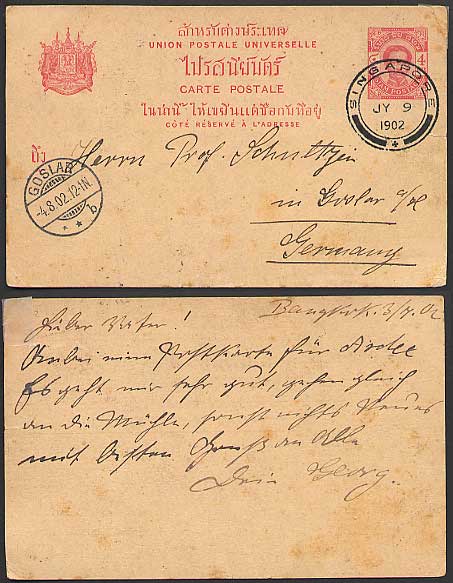 สำหรับต่างประเทศ
UNION POSTALE UNIVERSELLE
ไปรสนียบัตร์
CARTE POSTALE
ในน่านี้ ให้เขียนแต่ชื่อกับที่อยู่
CÔTÉ RÉSERVÉ À L'ADRESSE
4
SINGAPORE
JY 9
1902
ถึง
Herrn Prof.
GOSLAR
-4.8.02.12-1N.
* * b
in Goslar a/H
Germany
Bangkok. 3/7. 02
Lieber Vater!
Anbei eine Postkarte für
Es geht mir sehr gut, gehen gleich
an die Mühle, sonst nichts Neues
mit besten Gruß an Alle
Dein Georg.